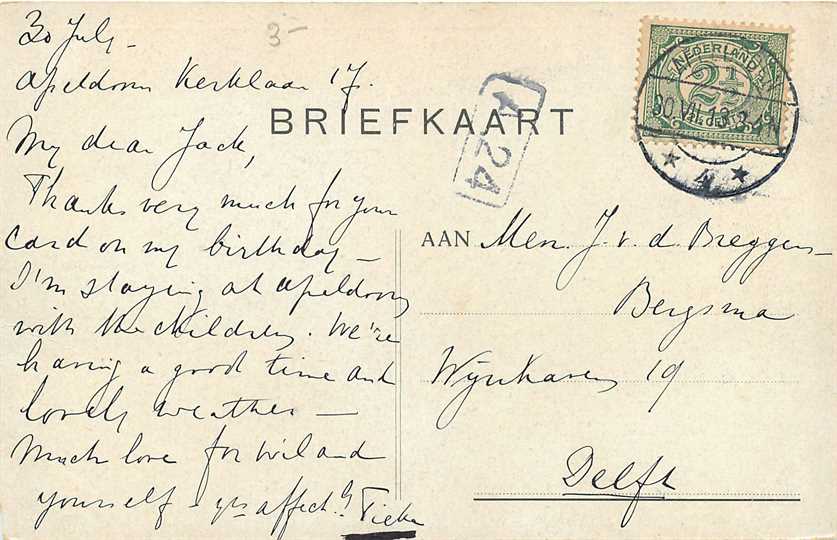 30 July -
3 -
Apeldoorn Kerklaan 17.
BRIEFKAART
NEDERLAND
2½
CENT
30.VII
4
24
My dear Jack,
Thanks very much for your
card on my birthday -
I'm staying at Apeldoorn
with the children. We're
having a good time and
lovely weather -
Much love for Wil and
yourself - yrs affectly
Tieka
AAN Mevr. J. v. d. Breggen-
Bergsma
Wijnhaven 19
Delft